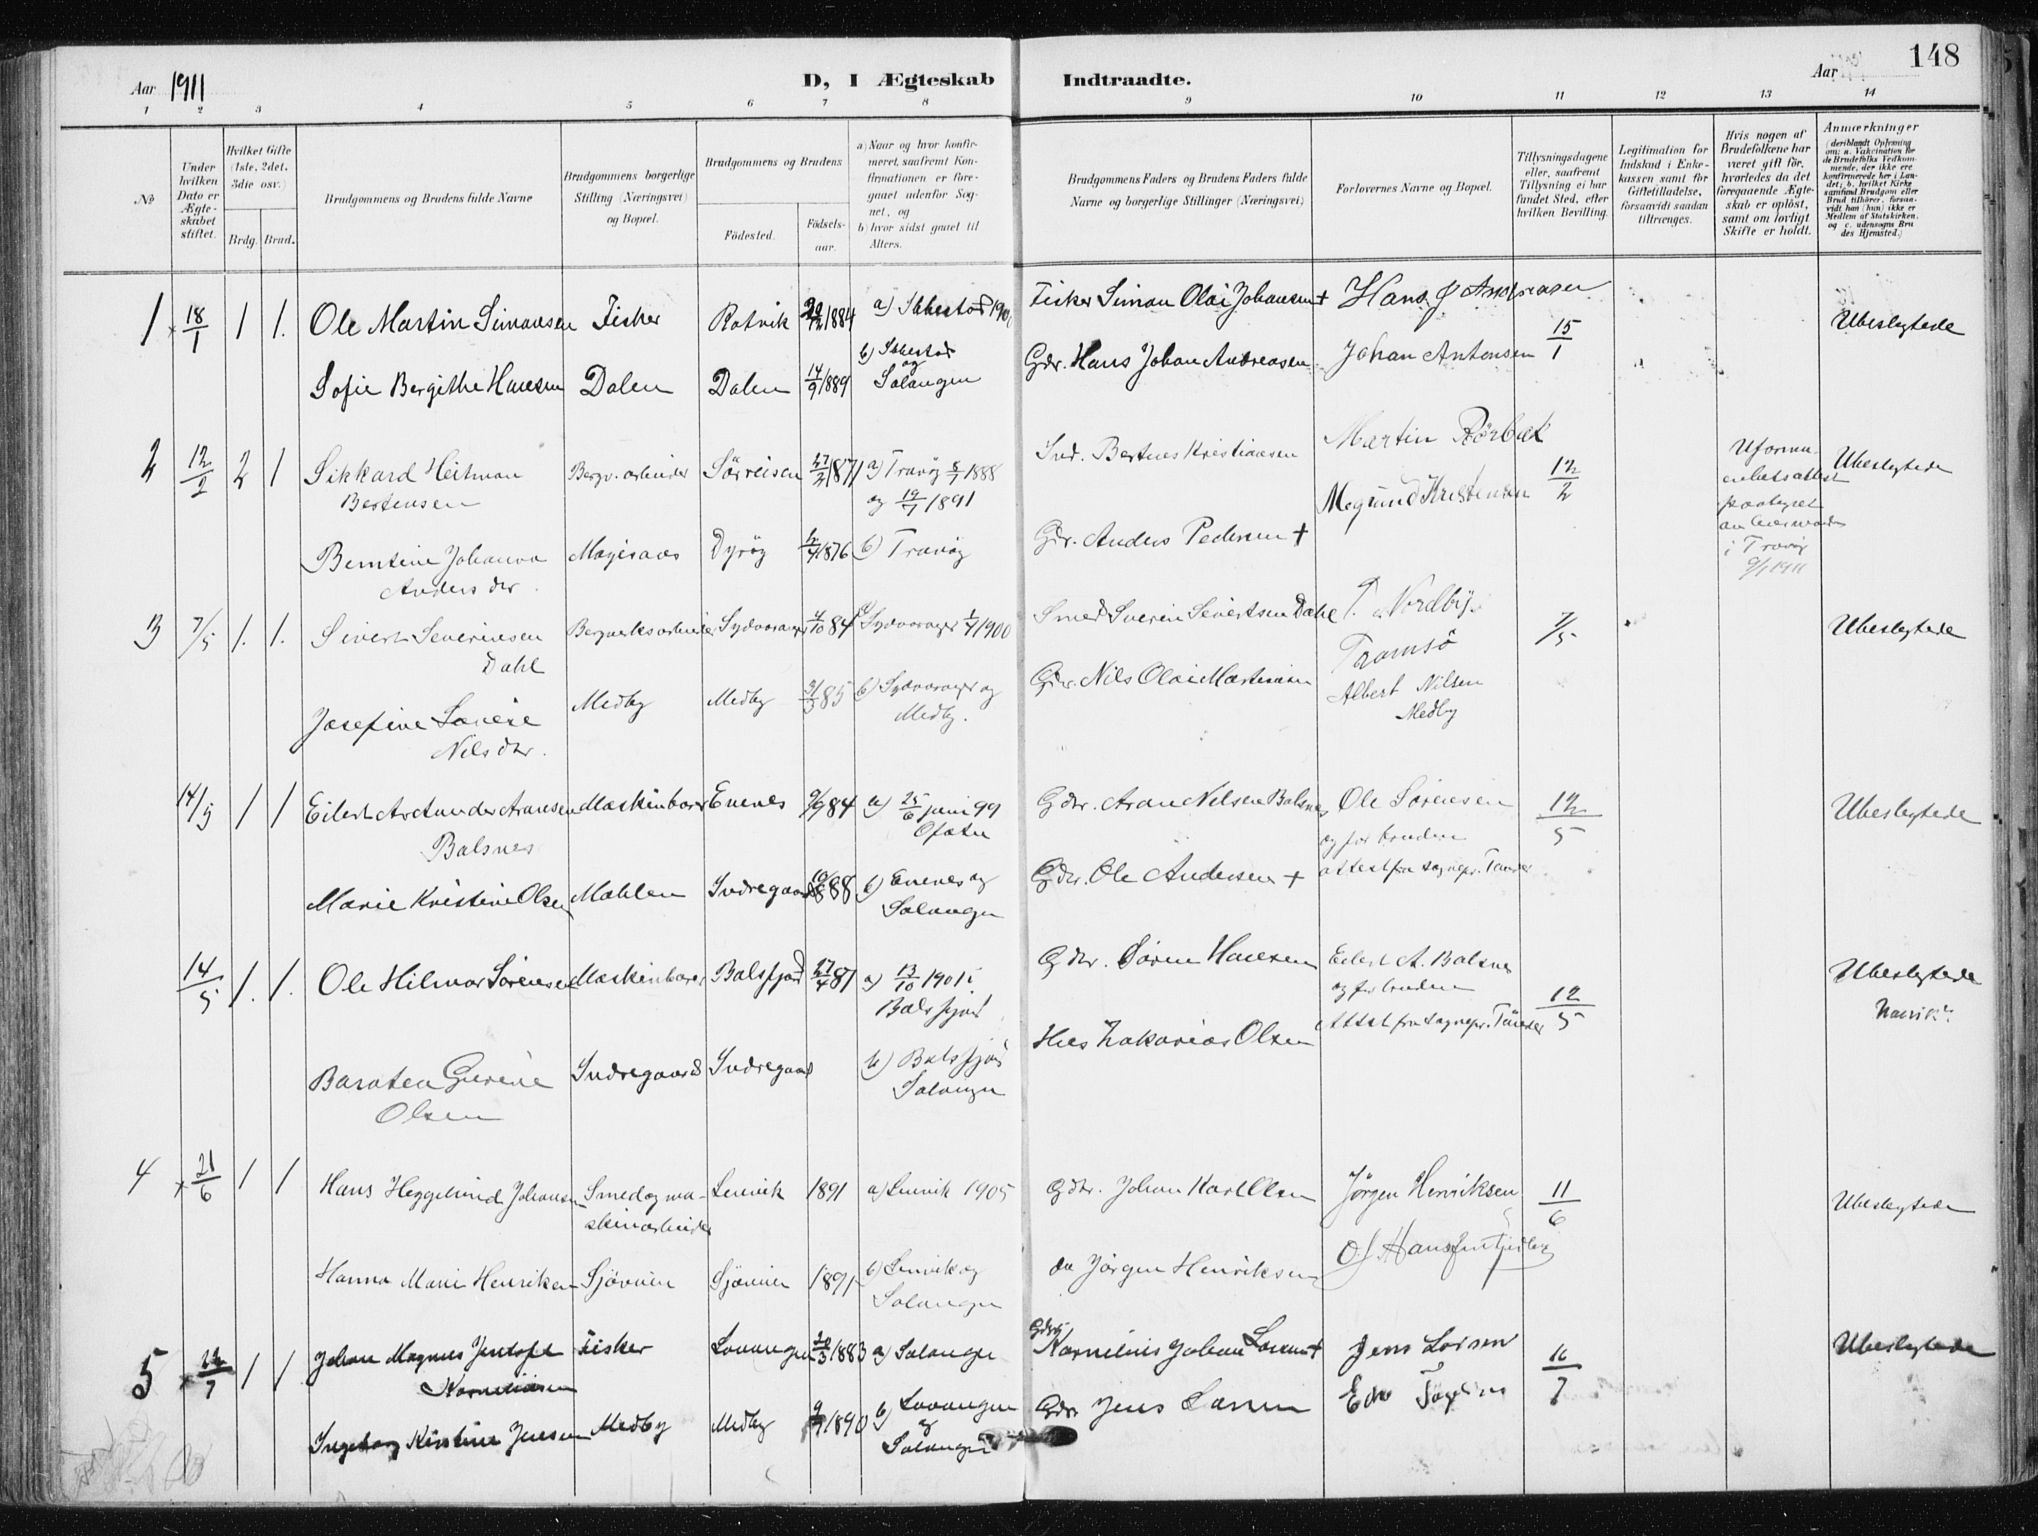 148
Aar 1911
D, I Ægteskab Indtraadte.
Aar
1 2 3 4 5 6 7 8 9 10 11 12 13 14
No
Under hvilken Dato er Ægteskabet stiftet.
Hvilket Gifte (1ste, 2det, 3die osv.)
Brdg. Brud.
Brudgommens og Brudens fulde Navne
Brudgommens borgerlige Stilling (Næringsvei) og Bopæl.
Brudgommens og Brudens
Födested.
Födselsaar.
a) Naar og hvor konfirmeret, saafremt Konfirmationen er foregaaet udenfor Sognet, og
b) hvor sidst gaaet til Alters.
Brudgommens Faders og Brudens Faders fulde Navne og borgerlige Stillinger (Næringsvei)
Forlovernes Navne og Bopæl.
Tillysningsdagene eller, saafremt Tillysning ei har fundet Sted, efter hvilken Bevilling.
Legitimation for Indskud i Enkekassen samt for Giftetilladelse, forsaavidt saadan tiltrænges.
Hvis nogen af Brudefolkene har været gift før, hvorledes da det foregaaende Ægteskab er oplöst, samt om lovligt Skifte er holdt.
Anmærkninger (deriblandt Oplysning om: a. Vakcination for de Brudefolks Vedkommende, der ikke ere konfirmerede her i Landet; b. hvilket Kirkesamfund Brudgom eller Brud tilhører, forsaavidt han (hun) ikke er Medlem af Statskirken, og c. udensogns Brudes Hjemsted.)
1 × 18/1 1 1. Ole Martin Simonsen Fisker Rotvik 1884 a) Ibbestad Fisker Simon Olai Johansen + Hans J Andreasen 15/1 Ubeslegtede
Sofie Bergithe Hansen Dalen Dalen 14/9 1889 b) Ibbestad og Salangen Gdr. Hans Johan Andreasen Johan Antonsen
2 12/2 2 1 Sikkard Heitman Bertensen Bergv. arbeider Sørreisen 27/2 1871 a) Tranøy 1888 og 19/7 1891 Ind. Bertnes Kristiansen Martin Rörbak 12/2 Ubeslegtede
Berntine Johanna Andersdtr Dyrøy 1876 b) Tranøy Gdr. Anders Pedersen + Kristensen
i Tranøy
1911
3 7/5 1. 1. Sivert Severinsen Dahl Bergverksarbeider Sydvaranger 84 Sydvaranger 1900 Smed Severin Sevértsen Dahl Nordby Tromsö 7/5 Ubeslegtede
Josefine Nilsdtr. Medby Medby 85 b) Sydvaranger og Medby. Gdr. Nils Olai Martinsen Albert Nilsen Medby
14/5 1 1 Eilert Aransen Balsnes Maskinborer Evenes 84 a) 25/6 juni 99 Ofoten Gdbr. Aran Nilsen Balsnes Ole Sørensen og for bruden attest fra sognepr. 12/5 Ubeslegtede
Marie Kristine Olsen Indregaard 88 b) Evenes og Salangen Gdbr. Ole Andersen +
14/5 1. 1. Ole Hilmar Sörensen Maskinborer Balsfjord 27/4 81 a) 13/10 1901 i Balsfjord Gdbr. Sören Hansen Eilert A. Balsnes og for bruden Attest fra sognepr. 12/5 Ubeslegtede
Olsen Indregaard Indregaard b) Balsfjord Salangen Zakarias Olsen
4 × 21/6 1 1 Hans Heggelund Johansen Smed og maskinarbeider Lenvik 1891 a) Lenvik 1905 Gdbr. Johan Karl Olsen Jörgen Henriksen 11/6 Ubeslegtede
Hanna Marie Henriksen Sjövien Sjövien 1891 b) Lenvik og Salangen do Jörgen Henriksen
5 × 1 1 Johan Magnus Jentoft Korneliusen Fisker Lavangen 1883 a) Salangen Gdbr. Kornelius Johan Larsen + Jens Larsen 16/7 Ubeslegtede
Ingeborg Kirstine Jensen Medby Medby 1890 b) Lavangen og Salangen Gdbr Jens Larsen